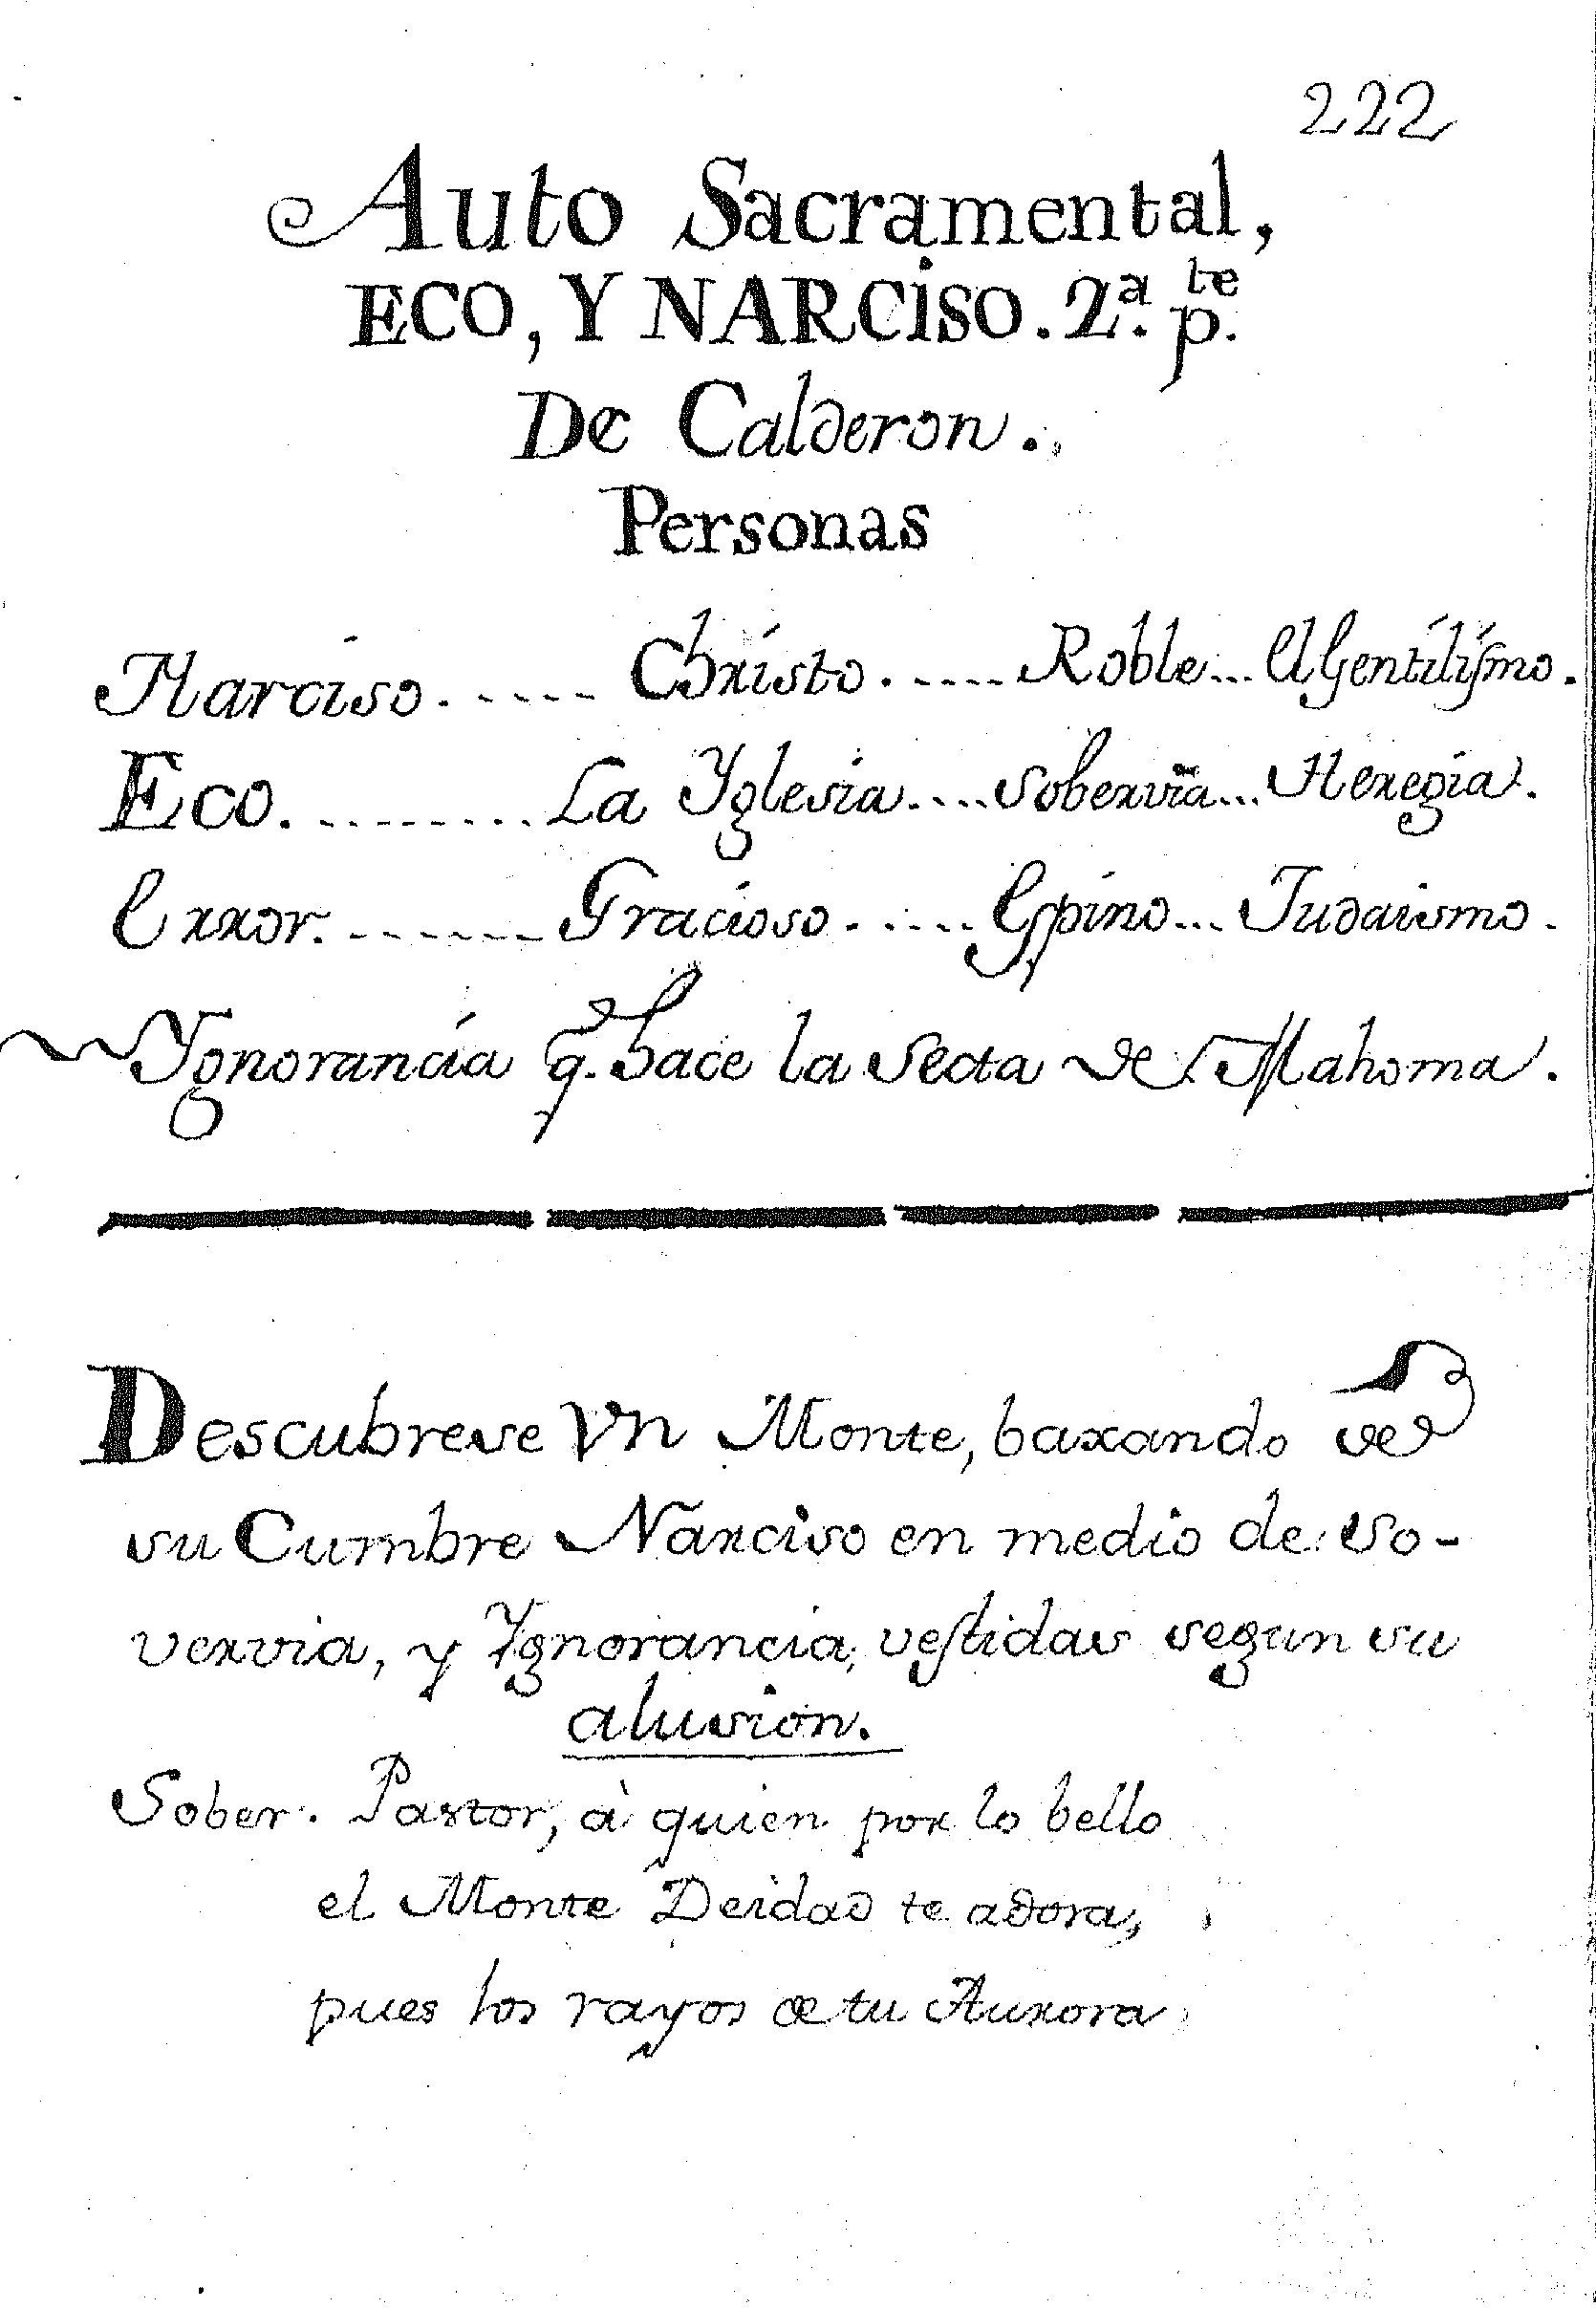 222
Auto Sacramental,
ECO, Y NARCISO. 2.ª p.te
De Calderon.
Personas
Narciso...... Christo...... Roble... El Gentilismo.
Eco.......... La Yglesia.... Sobervia... Heregia.
Error........ Gracioso...... Espino... Judaismo.
Ygnorancia q.e hace la Secta de Mahoma.
Descubrese Vn Monte, baxando de
su Cumbre Narciso en medio de So-
vervia, y Ygnorancia, vestidas segun su
alusion.
Sober. Pastor, à quien por lo bello
el Monte Deidad te adora,
pues los rayos de tu Aurora